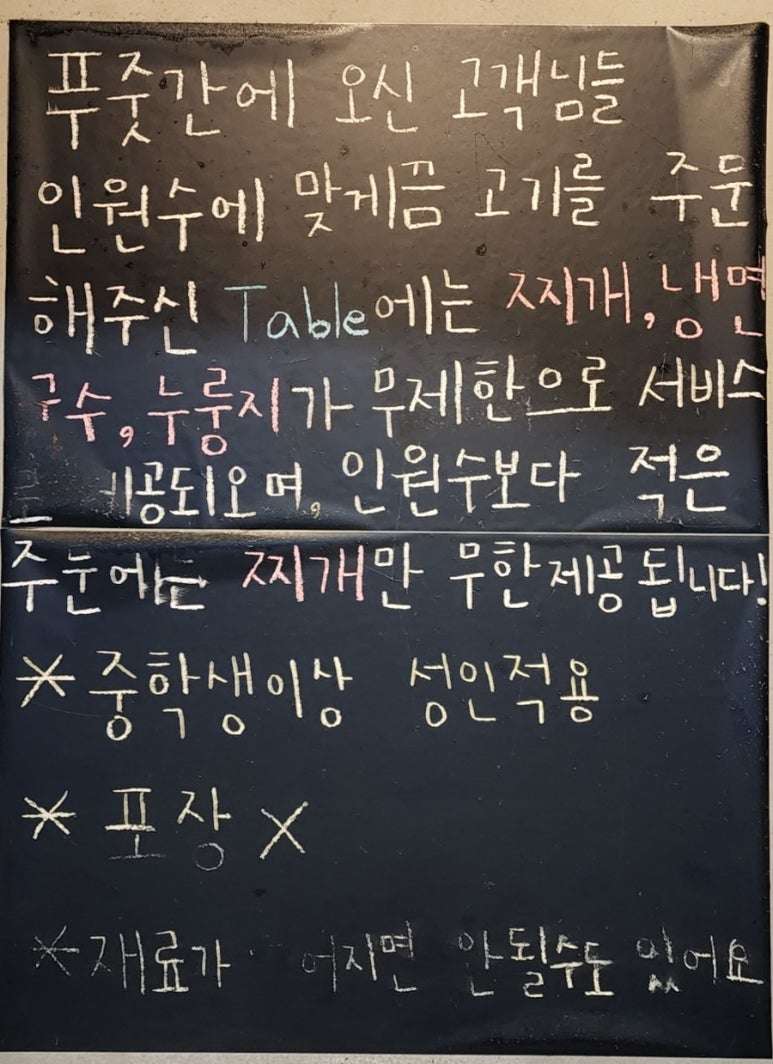 푸줏간에 오신 고객님들
인원수에 맞게끔 고기를 주문
해주신 Table에는 찌개, 냉면
국수, 누룽지가 무제한으로 서비스
로 제공되오며, 인원수보다 적은
주문에는 찌개만 무한제공됩니다!
* 중학생이상 성인적용
* 포장 X
* 재료가 안될수도 있어요